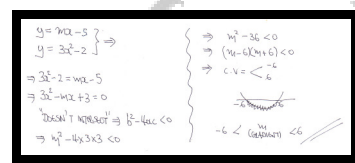 y = mx - 5
y = 3x² - 2 } ⇒
⇒ 3x² - 2 = mx - 5
⇒ 3x² - mx + 3 = 0
"DOESN'T INTERSECT" ⇒ b² - 4ac < 0
⇒ m² - 4×3×3 < 0
⇒ m² - 36 < 0
⇒ (m-6)(m+6) < 0
⇒ C.V = < -6
6
-6 6
-6 < m < 6
(GRADIENT)